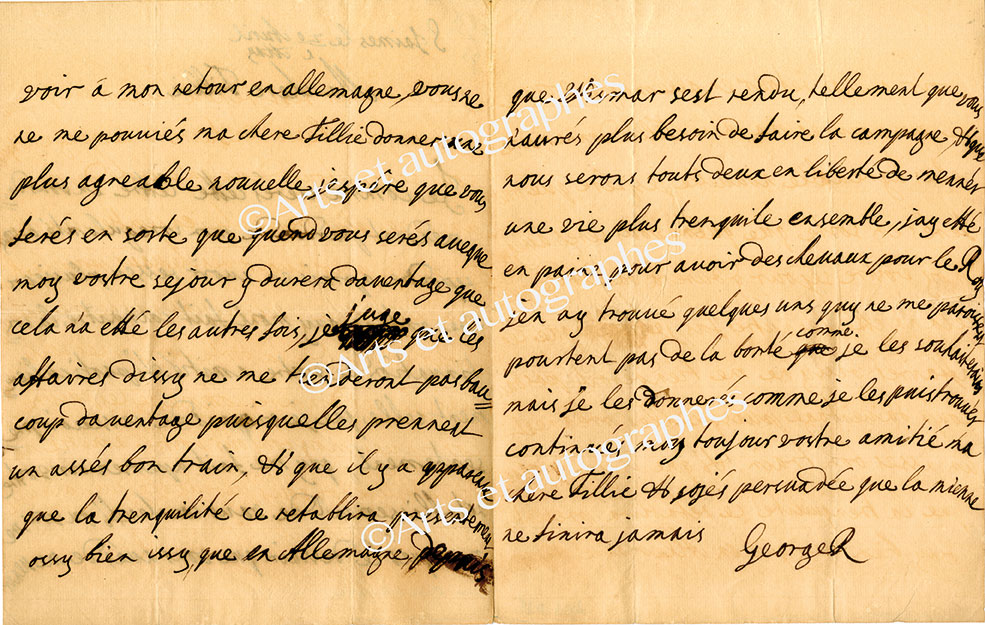 voir á mon retour en allemagne, vous ne
ne me pouviés ma chere Fillie donner une
plus agreable nouvelle jespére que vous
ferés en sorte que quend vous serés aveque
moy vostre sejour y durera daventage que
cela na etté les autres fois, je juge que les
affaires dissy ne me tienderont pas bau=
coup daventage puisquelles prennent
un assés bon train, et que il y a apparance
que la trenquilité ce retablira presentement
ossy bien issy, que en Allemagne, paprés
que Wismar sest rendu, tellement que vous
naurés plus besoin de faire la campagne, et que
nous serons touts deux en liberté de menner
une vie plus trenquile ensemble, jay etté
en paine pour avoir des chevaux pour le Roy
jen ay trouvé quelques uns quy ne me paroissent
pourtent pas de la bonté comme je les souhaiterois
mais je les donneres comme je les puis trouver
continués moy toujour vostre amitié ma
chere Fillie et sojés persuadée que la mienne
ne finira jamais
George R
©Arts et autographes
©Arts et autographes
©Arts et autographes
©Arts et autographes